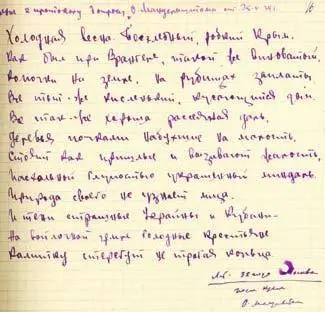 к протоколу допроса О. Мандельштама от 25.V.34 г.
Холодная весна. Бесхлебный, робкий Крым.
Как был при Врангеле, такой же виноватый,
Комочки на земле, на рубищах заплаты,
Всё тот-же кисленький, кусающийся дым.
Всё так-же хороша рассеянная даль,
Деревья почками набухшие на малость,
Стоят как пришлые и вызывают жалость,
Пасхальной глупостью украшенный миндаль.
Природа своего не узнает лица.
И тени страшные Украины и Кубани—
На войлочной земле голодные крестьяне
Калитку стерегут не трогая кольца.
О. Мандельштам